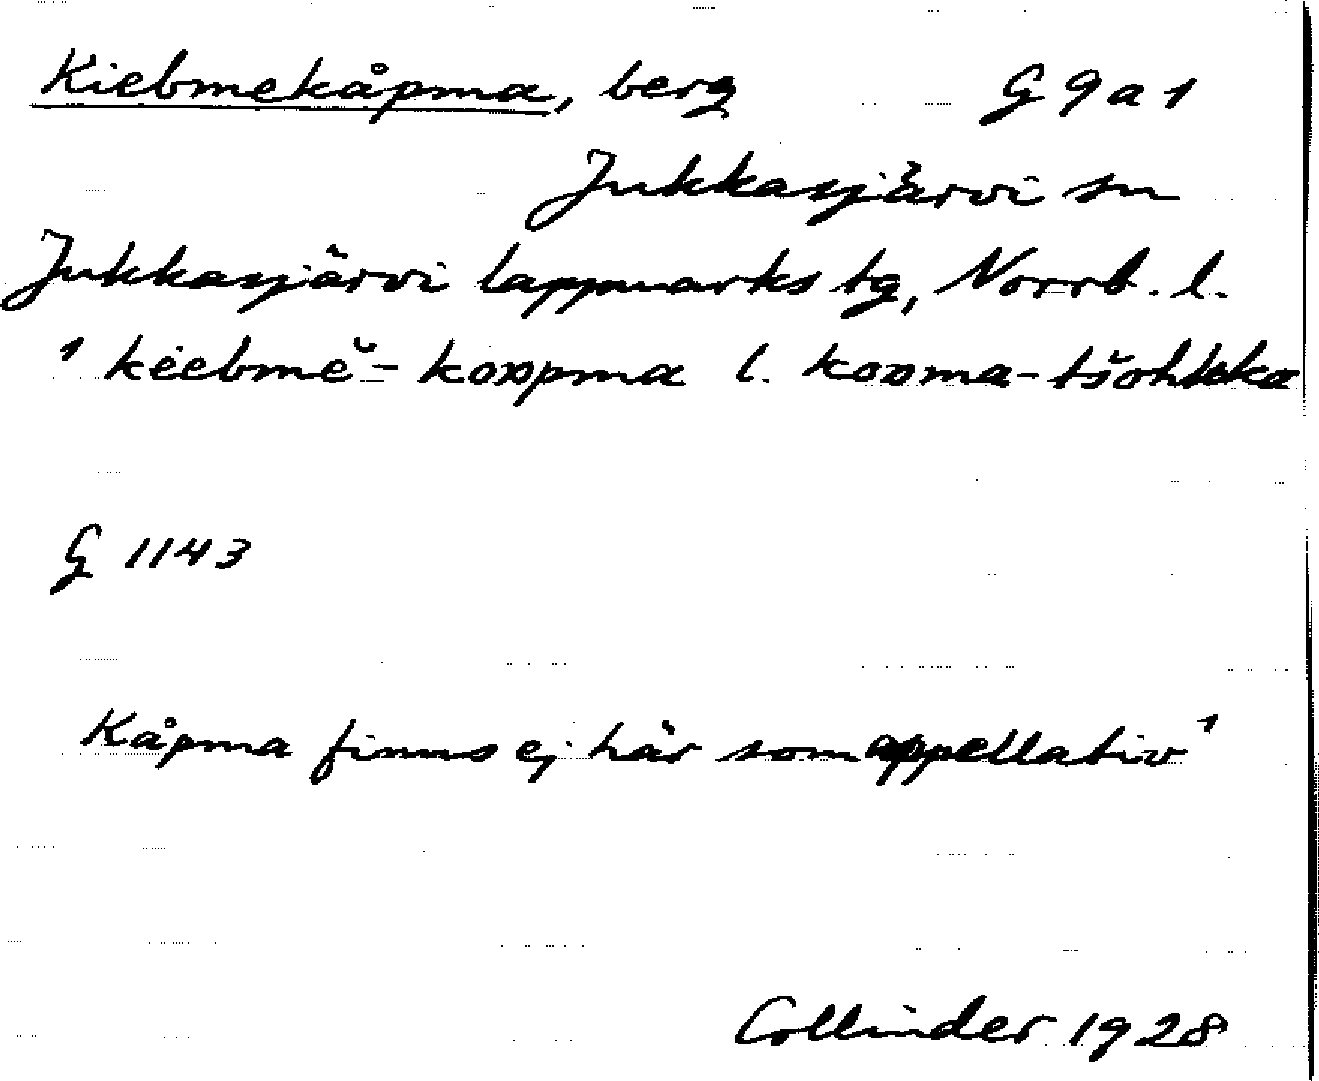 Kiebmekåpma, berg G 9 a 1
Jukkasjärvi sn
Jukkasjärvi lappmarks tg, Norrb. l.
' kèebmĕ- koppma l. kooma-tšohkka
G 1143
Kåpma finns ej här som appellativ '
Collinder 1928